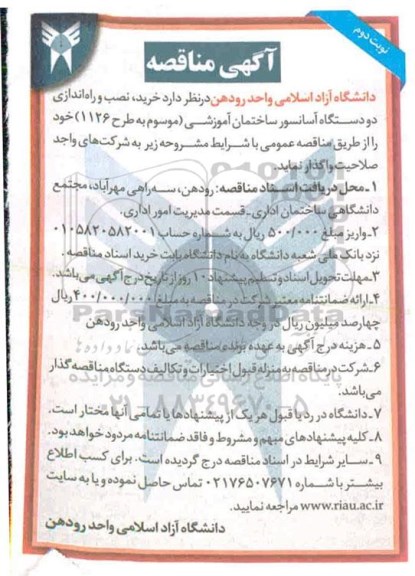 نوبت دوم
آگهی مناقصه
دانشگاه آزاد اسلامی واحد رودهن درنظر دارد خرید، نصب و راه‌اندازی
دو دستگاه آسانسور ساختمان آموزشی (موسوم به طرح ۱۱۲۶) خود
را از طریق مناقصه عمومی با شرایط مشروحه زیر به شرکت‌های واجد
صلاحیت واگذار نماید.
۱ـ محل دریافت اسناد مناقصه: رودهن، سه‌راهی مهرآباد، مجتمع
دانشگاهی ساختمان اداری ـ قسمت مدیریت امور اداری.
۲ـ واریز مبلغ ۵۰۰/۰۰۰ ریال به شماره حساب ۰۱۰۵۸۲۰۵۸۲۰۰۱
نزد بانک ملی شعبه دانشگاه به نام دانشگاه بابت خرید اسناد مناقصه.
۳ـ مهلت تحویل اسناد و تسلیم پیشنهاد ۱۰ روز از تاریخ درج آگهی می‌باشد.
۴ـ ارائه ضمانتنامه معتبر شرکت در مناقصه به مبلغ ۴۰۰/۰۰۰/۰۰۰ ریال
چهارصد میلیون ریال در وجه دانشگاه آزاد اسلامی واحد رودهن
۵ـ هزینه درج آگهی به عهده برنده‌ی مناقصه می‌باشد.
۶ـ شرکت در مناقصه به منزله قبول اختیارات و تکالیف دستگاه مناقصه‌گذار
می‌باشد.
۷ـ دانشگاه در رد یا قبول هر یک از پیشنهادها یا تمامی آنها مختار است.
۸ـ کلیه پیشنهادهای مبهم و مشروط و فاقد ضمانتنامه مردود خواهد بود.
۹ـ سایر شرایط در اسناد مناقصه درج گردیده است. برای کسب اطلاع
بیشتر با شماره ۰۲۱۷۶۵۰۷۶۷۱ تماس حاصل نموده و یا به سایت
www.riau.ac.ir مراجعه نمایید.
دانشگاه آزاد اسلامی واحد رودهن
ParsNamadData
پایگاه اطلاع رسانی مناقصه و مزایده
۰۲۱-۸۸۳۴۹۶۷۰-۵